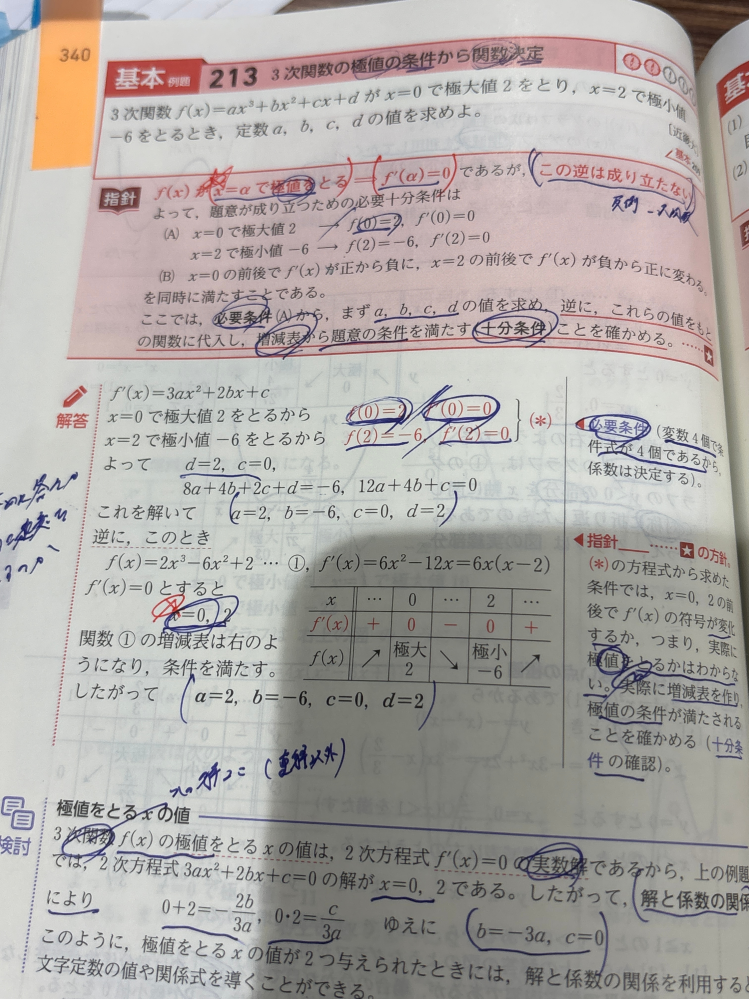 340
基本 例題 213 3次関数の極値の条件から関数決定
3次関数 f(x)=ax³+bx²+cx+d が x=0 で極大値2をとり，x=2 で極小値
−6 をとるとき，定数 a，b，c，d の値を求めよ。
指針
f(x) が x=α で極値をとる → f′(α)=0 であるが，この逆は成り立たない
よって，題意が成り立つための必要十分条件は
(A) x=0 で極大値 2 → f(0)=2，f′(0)=0
x=2 で極小値 −6 → f(2)=−6，f′(2)=0
(B) x=0 の前後で f′(x) が正から負に，x=2 の前後で f′(x) が負から正に変わる。
を同時に満たすことである。
ここでは，必要条件(A)から，まず a，b，c，d の値を求め，逆に，これらの値をもと
の関数に代入し，増減表から題意の条件を満たす(十分条件)ことを確かめる。……★
解答
f′(x)=3ax²+2bx+c
x=0 で極大値2をとるから f(0)=2，f′(0)=0
x=2 で極小値 −6 をとるから f(2)=−6，f′(2)=0 (*)
よって d=2，c=0，
8a+4b+2c+d=−6，12a+4b+c=0
これを解いて a=2，b=−6，c=0，d=2
逆に，このとき
f(x)=2x³−6x²+2 … ①，f′(x)=6x²−12x=6x(x−2)
f′(x)=0 とすると
x=0，2
関数①の増減表は右のよ
うになり，条件を満たす。
したがって
a=2，b=−6，c=0，d=2
x … 0 … 2 …
f′(x) + 0 − 0 +
f(x) ↗ 極大 2 ↘ 極小 −6 ↗
必要条件(変数4個で条
件式が4個であるから，
係数は決定する)。
◀指針＿＿……★の方針。
(*)の方程式から求めた
条件では，x=0，2 の前
後で f′(x) の符号が変化
するか，つまり，実際に
極値をとるかはわからな
い。実際に増減表を作り，
極値の条件が満たされる
ことを確かめる(十分条
件の確認)。
検討
極値をとる x の値
3次関数 f(x) の極値をとる x の値は，2次方程式 f′(x)=0 の実数解であるから，上の例題
では，2次方程式 3ax²+2bx+c=0 の解が x=0，2 である。したがって，解と係数の関係
により 0+2=−2b/3a，0・2=c/3a ゆえに b=−3a，c=0
このように，極値をとる x の値が2つ与えられたときには，解と係数の関係を利用すると
文字定数の値や関係式を導くことができる。